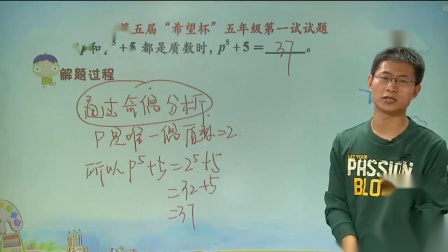 第五届“希望杯”五年级第一试试题
和 都是质数时，p⁵+5= 37 。
解题过程
通过奇偶分析
P是唯一偶质数=2
所以 P⁵+5=2⁵+5
=32+5
=37
LET YOUR
PASSION
BLO